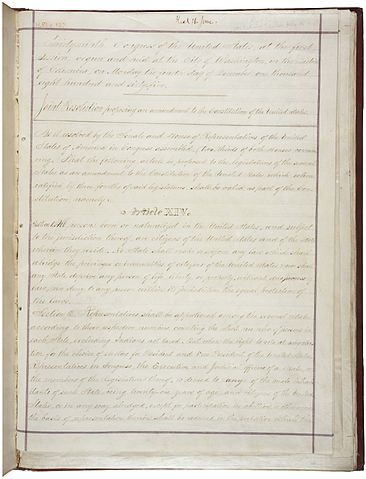 Thirty-ninth Congress of the United States, at the first
session, begun and held at the City of Washington, in the District
of Columbia, on Monday the fourth day of December one thousand
eight hundred and sixty-five.
Joint Resolution proposing an amendment to the Constitution of the United States.
Be it resolved by the Senate and House of Representatives of the United
States of America in Congress assembled, (two thirds of both Houses concurring,)
That the following article be proposed to the legislatures of the several
States as an amendment to the Constitution of the United States, which when
ratified by three fourths of said legislatures, shall be valid as part of the Constitution,
namely:
Article XIV.
Section 1. All persons born or naturalized in the United States, and subject
to the jurisdiction thereof, are citizens of the United States and of the State
wherein they reside. No State shall make or enforce any law which shall
abridge the privileges or immunities of citizens of the United States; nor shall
any State deprive any person of life, liberty, or property, without due process
of law; nor deny to any person within its jurisdiction the equal protection of
the laws.
Section 2. Representatives shall be apportioned among the several States
according to their respective numbers, counting the whole number of persons in
each State, excluding Indians not taxed. But when the right to vote at any election
for the choice of electors for President and Vice President of the United States,
Representatives in Congress, the Executive and Judicial officers of a State, or
the members of the Legislature thereof, is denied to any of the male inhabitants
of such State, being twenty-one years of age, and citizens of the United
States, or in any way abridged, except for participation in rebellion, or other crime,
the basis of representation therein shall be reduced in the proportion which the